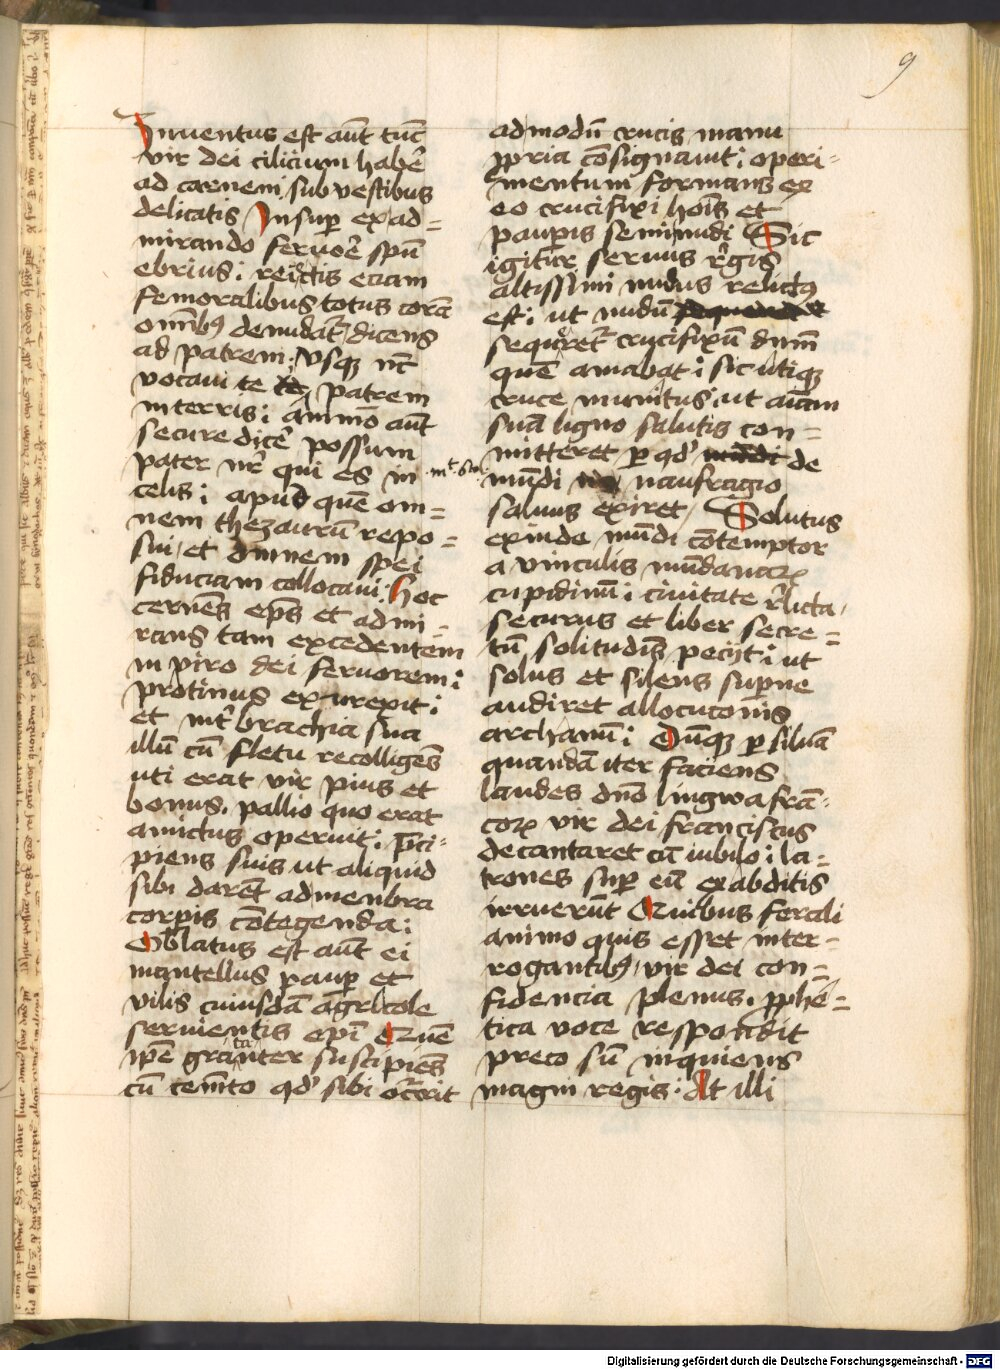 9
Inuentus est aut͂ tūc
vir dei cilicium habe͂
ad carnem sub vestibus
delicatis Insup̱ ex ad=
mirando feruore͂ spū
ebrius: reiectis eciam
femoralibus totus corā
omībꝰ denudat͂ dicens
ad patrem: Vsqꝫ nūc
vocaui te patrem
in terris: ammō aut͂
secure dice͂ possum
pater nr͂ qui es in
celis: apud quē om=
nem thezaurū repo=
sui et omnem spei
fiduciam collocaui: Hoc
cernēs ep̄s et admi=
rans tam excedentem
in viro dei feruorem:
protinus exurexit:
et int͂ brachia sua
illū cū fletu recolligens
uti erat vir pius et
bonus. pallio quo erat
amictus operuit: p̄ci=
piens suis ut aliquid
sibi darēt ad menbra
corp̱is cōtegenda:
Oblatus est aut͂ ei
mantellus paup̱ et
vilis cuiusdā agricole
seruientis ep̄i Quē
ip̄e grātanter suscipiēs
cū cemēto qd' sibi occ͂rit
admodū crucis manu
ꝓpria cōsignauit: operi=
mentum formans ex
eo crucifixi hoīs et
paup̱is seminudi Sic
igitur seruus regis
altissimi nudus relictꝰ
est: ut nudū
sequeret͂ crucifixū dnm̄
quē amabat: sic utiqꝫ
cruce munitus: ut aīam
suā ligno salutis con=
mitteret p̱ qd' de
mūdi naufragio
saluus exiret / Solutus
exinde mūdi cōtemptor
a vinculis mūdanaꝝ
cupidinū: ciuitate relicta
securus et liber secre=
tū solitudis pecijt: ut
solus et silens sup̱ne
audiret allocucōnis
archanū: Dūqꝫ p̱ siluā
quandā iter faciens
laudes dnō lingwa frā=
coꝝ vir dei franciscus
decantaret cū iubilo: la=
trones sup̱ eū ex abditis
irruerūt Quibus ferali
animo quis esset inter=
rogantibꝰ vir dei con=
fidencia plenus. ꝓphe=
tica voce respondit
preco sū inquiens
magni regis: At illi
Digitalisierung gefördert durch die Deutsche Forschungsgemeinschaft - DFG